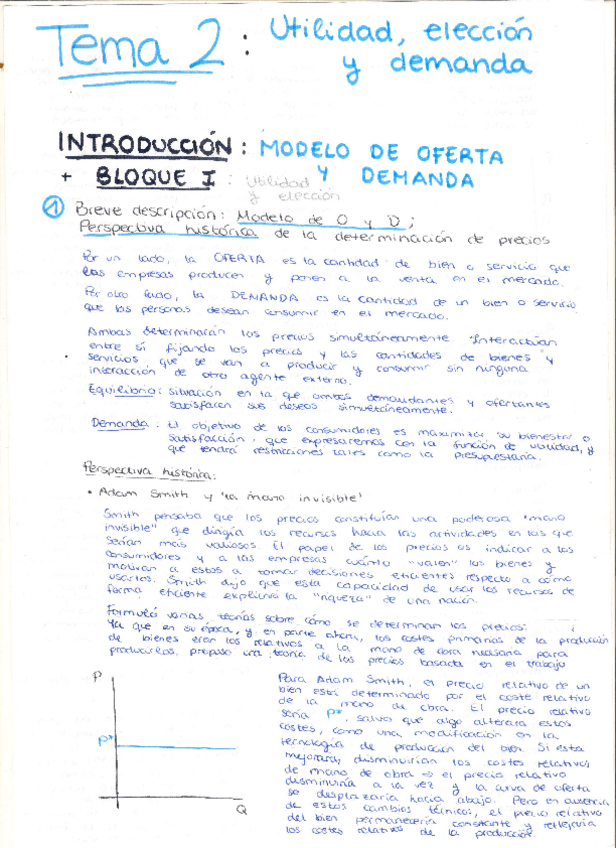 Tema 2: Utilidad, elección
y demanda
INTRODUCCIÓN: MODELO DE OFERTA
Y DEMANDA
+ BLOQUE I: Utilidad
y elección
① Breve descripción: Modelo de O y D;
Perspectiva histórica de la determinación de precios
Por un lado, la OFERTA es la cantidad de bien o servicio que
las empresas producen y ponen a la venta en el mercado.
Por otro lado, la DEMANDA es la cantidad de un bien o servicio
que las personas desean consumir en el mercado.
Ambas determinarán los precios simultáneamente. Interactúan
entre sí fijando los precios y las cantidades de bienes y
servicios que se van a producir y consumir sin ninguna
interacción de otro agente externo.
Equilibrio: situación en la que ambos demandantes y ofertantes
satisfacen sus deseos simultáneamente.
Demanda: El objetivo de los consumidores es maximizar su bienestar o
satisfacción, que expresaremos con la función de utilidad, y
que tendrá restricciones tales como la presupuestaria.
Perspectiva histórica:
• Adam Smith y "la mano invisible"
Smith pensaba que los precios constituían una poderosa "mano
invisible" que dirigía los recursos hacia las actividades en las que
serían más valiosos. El papel de los precios es indicar a los
consumidores y a las empresas cuánto "valen" los bienes y
motivar a estos a tomar decisiones eficientes respecto a cómo
usarlos. Smith dijo que esta capacidad de usar los recursos de
forma eficiente explicaba la "riqueza" de una nación.
Formuló varias teorías sobre cómo se determinan los precios:
Ya que en su época, y en parte ahora, los costes primarios de la producción
de bienes eran los relativos a la mano de obra necesaria para
producirlos, propuso una teoría de los precios basada en el trabajo
P
P*
Q
Para Adam Smith, el precio relativo de un
bien está determinado por el coste relativo
de la mano de obra. El precio relativo
sería P*, salvo que algo alterara estos
costes, como una modificación en la
tecnología de producción del bien. Si esta
mejorara, disminuirían los costes relativos
de mano de obra ⇒ el precio relativo
disminuiría a la vez y la curva de oferta
se desplazaría hacia abajo. Pero en ausencia
de estos cambios técnicos, el precio relativo
del bien permanecería constante y reflejaría
los costes relativos de la producción.